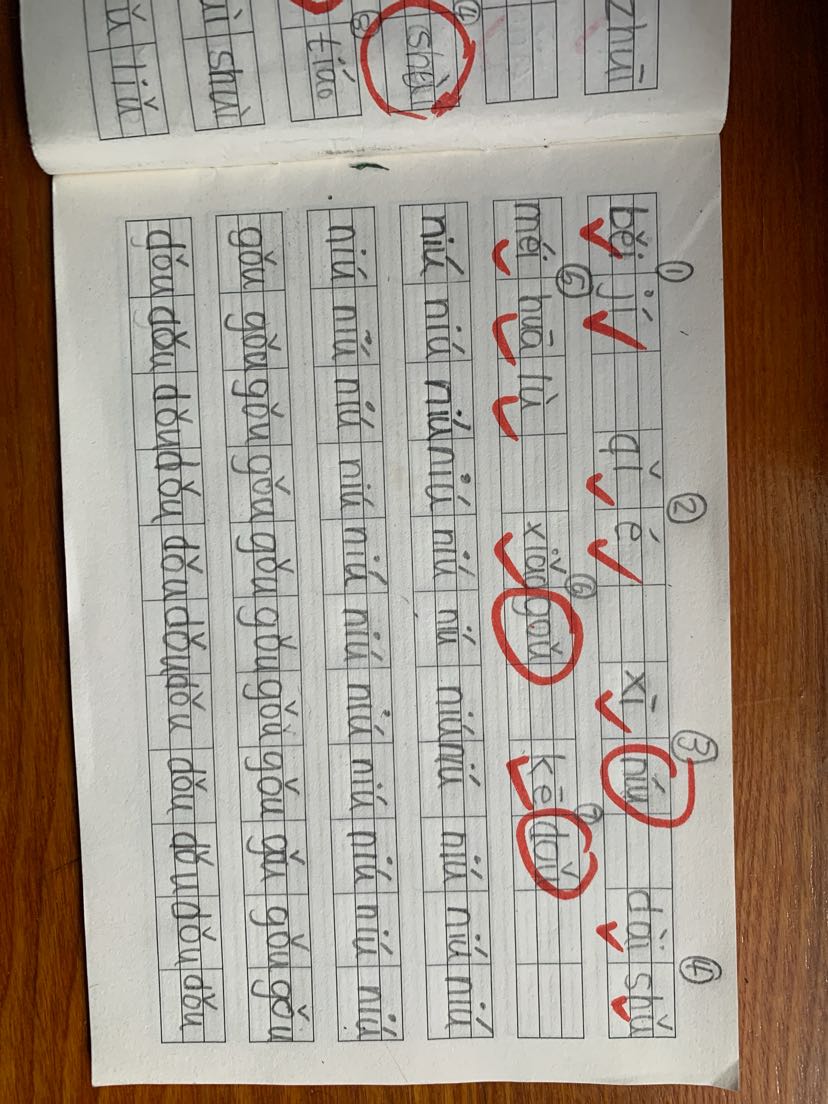 zhuī
④ shuǐ
⑧ tiáo
shuǐ
liǔ
① běi jí ② qǐ é ③ xī niú ④ dài shǔ
⑤ méi huā lù ⑥ xiǎo gǒu ⑦ kē dǒu
niú niú niú niú niú niú niú niú niú niú niú
niú niú niú niú niú niú niú niú niú niú niú
gǒu gǒu gǒu gǒu gǒu gǒu gǒu gǒu gǒu gǒu gǒu
dǒu dǒu dǒu dǒu dǒu dǒu dǒu dǒu dǒu dǒu dǒu